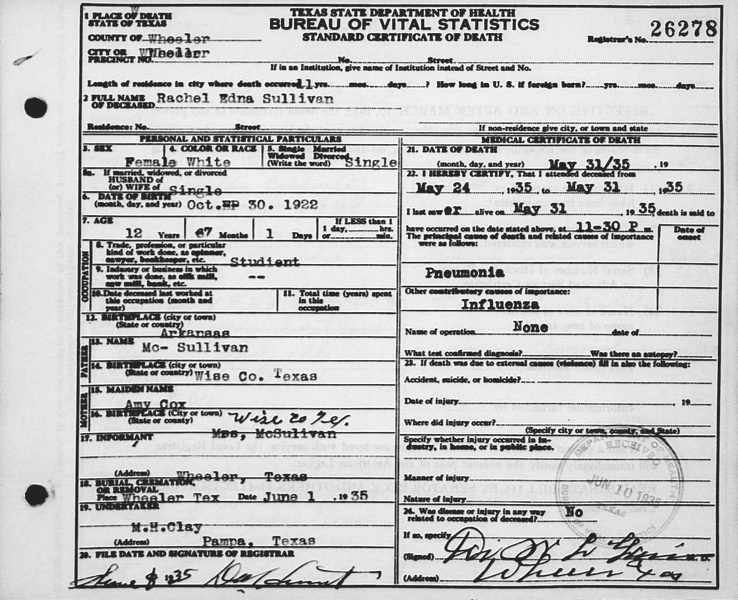 TEXAS STATE DEPARTMENT OF HEALTH
BUREAU OF VITAL STATISTICS
STANDARD CERTIFICATE OF DEATH
Registrar's No. 26278
1 PLACE OF DEATH
STATE OF TEXAS
COUNTY OF Wheeler
CITY OR
PRECINCT NO. Wheeler No. Street
If in an Institution, give name of Institution instead of Street and No.
Length of residence in city where death occurred 11 yrs. mos. days? How long in U. S. if foreign born? yrs. mos. days
2 FULL NAME
OF DECEASED Rachel Edna Sullivan
Residence: No. Street If non-residence give city, or town and state
PERSONAL AND STATISTICAL PARTICULARS
3. SEX Female
4. COLOR OR RACE White
5. Single Married Widowed Divorced (Write the word) Single
5a. If married, widowed, or divorced
HUSBAND OF
(or) WIFE OF Single
6. DATE OF BIRTH
(month, day, and year) Oct. 30. 1922
7. AGE
12 Years 67 Months 1 Days
If LESS than 1
1 day, hrs.
or min.
OCCUPATION
8. Trade, profession, or particular
kind of work done, as spinner,
sawyer, bookkeeper, etc. Studient
9. Industry or business in which
work was done, as silk mill,
saw mill, bank, etc. --
10. Date deceased last worked at
this occupation (month and
year)
11. Total time (years) spent
in this
occupation
12. BIRTHPLACE (city or town)
(State or country) Arkansas
FATHER
13. NAME
Mc- Sullivan
14. BIRTHPLACE (city or town)
(State or country) Wise Co. Texas
MOTHER
15. MAIDEN NAME
Amy Cox
16. BIRTHPLACE (City or town)
(State or country) Wise Co Tex.
17. INFORMANT Mrs, McSullivan
(Address) Wheeler, Texas
18. BURIAL, CREMATION,
OR REMOVAL
Place Wheeler Tex Date June 1 1935
19. UNDERTAKER
M.H.Clay
(Address) Pampa, Texas
20. FILE DATE AND SIGNATURE OF REGISTRAR
June 1935
MEDICAL CERTIFICATE OF DEATH
21. DATE OF DEATH
(month, day, and year) May 31/35 , 19
22. I HEREBY CERTIFY, That I attended deceased from
May 24 1935 to May 31 1935
I last saw er alive on May 31 1935 death is said to
have occurred on the date stated above, at 11-30 P m.
The principal cause of death and related causes of importance
were as follows:
Date of
onset
Pneumonia
Other contributory causes of importance:
Influenza
Name of operation None date of
What test confirmed diagnosis? Was there an autopsy?
23. If death was due to external causes (violence) fill in also the following:
Accident, suicide, or homicide?
Date of injury , 19
Where did injury occur?
(Specify city or town, county, and State)
Specify whether injury occurred in in-
dustry, in home, or in public place.
Manner of injury
Nature of injury
24. Was disease or injury in any way
related to occupation of deceased? No
If so, specify
(Signed)
(Address) Wheeler Texas
RECEIVED
JUN 10 1935
TEXAS